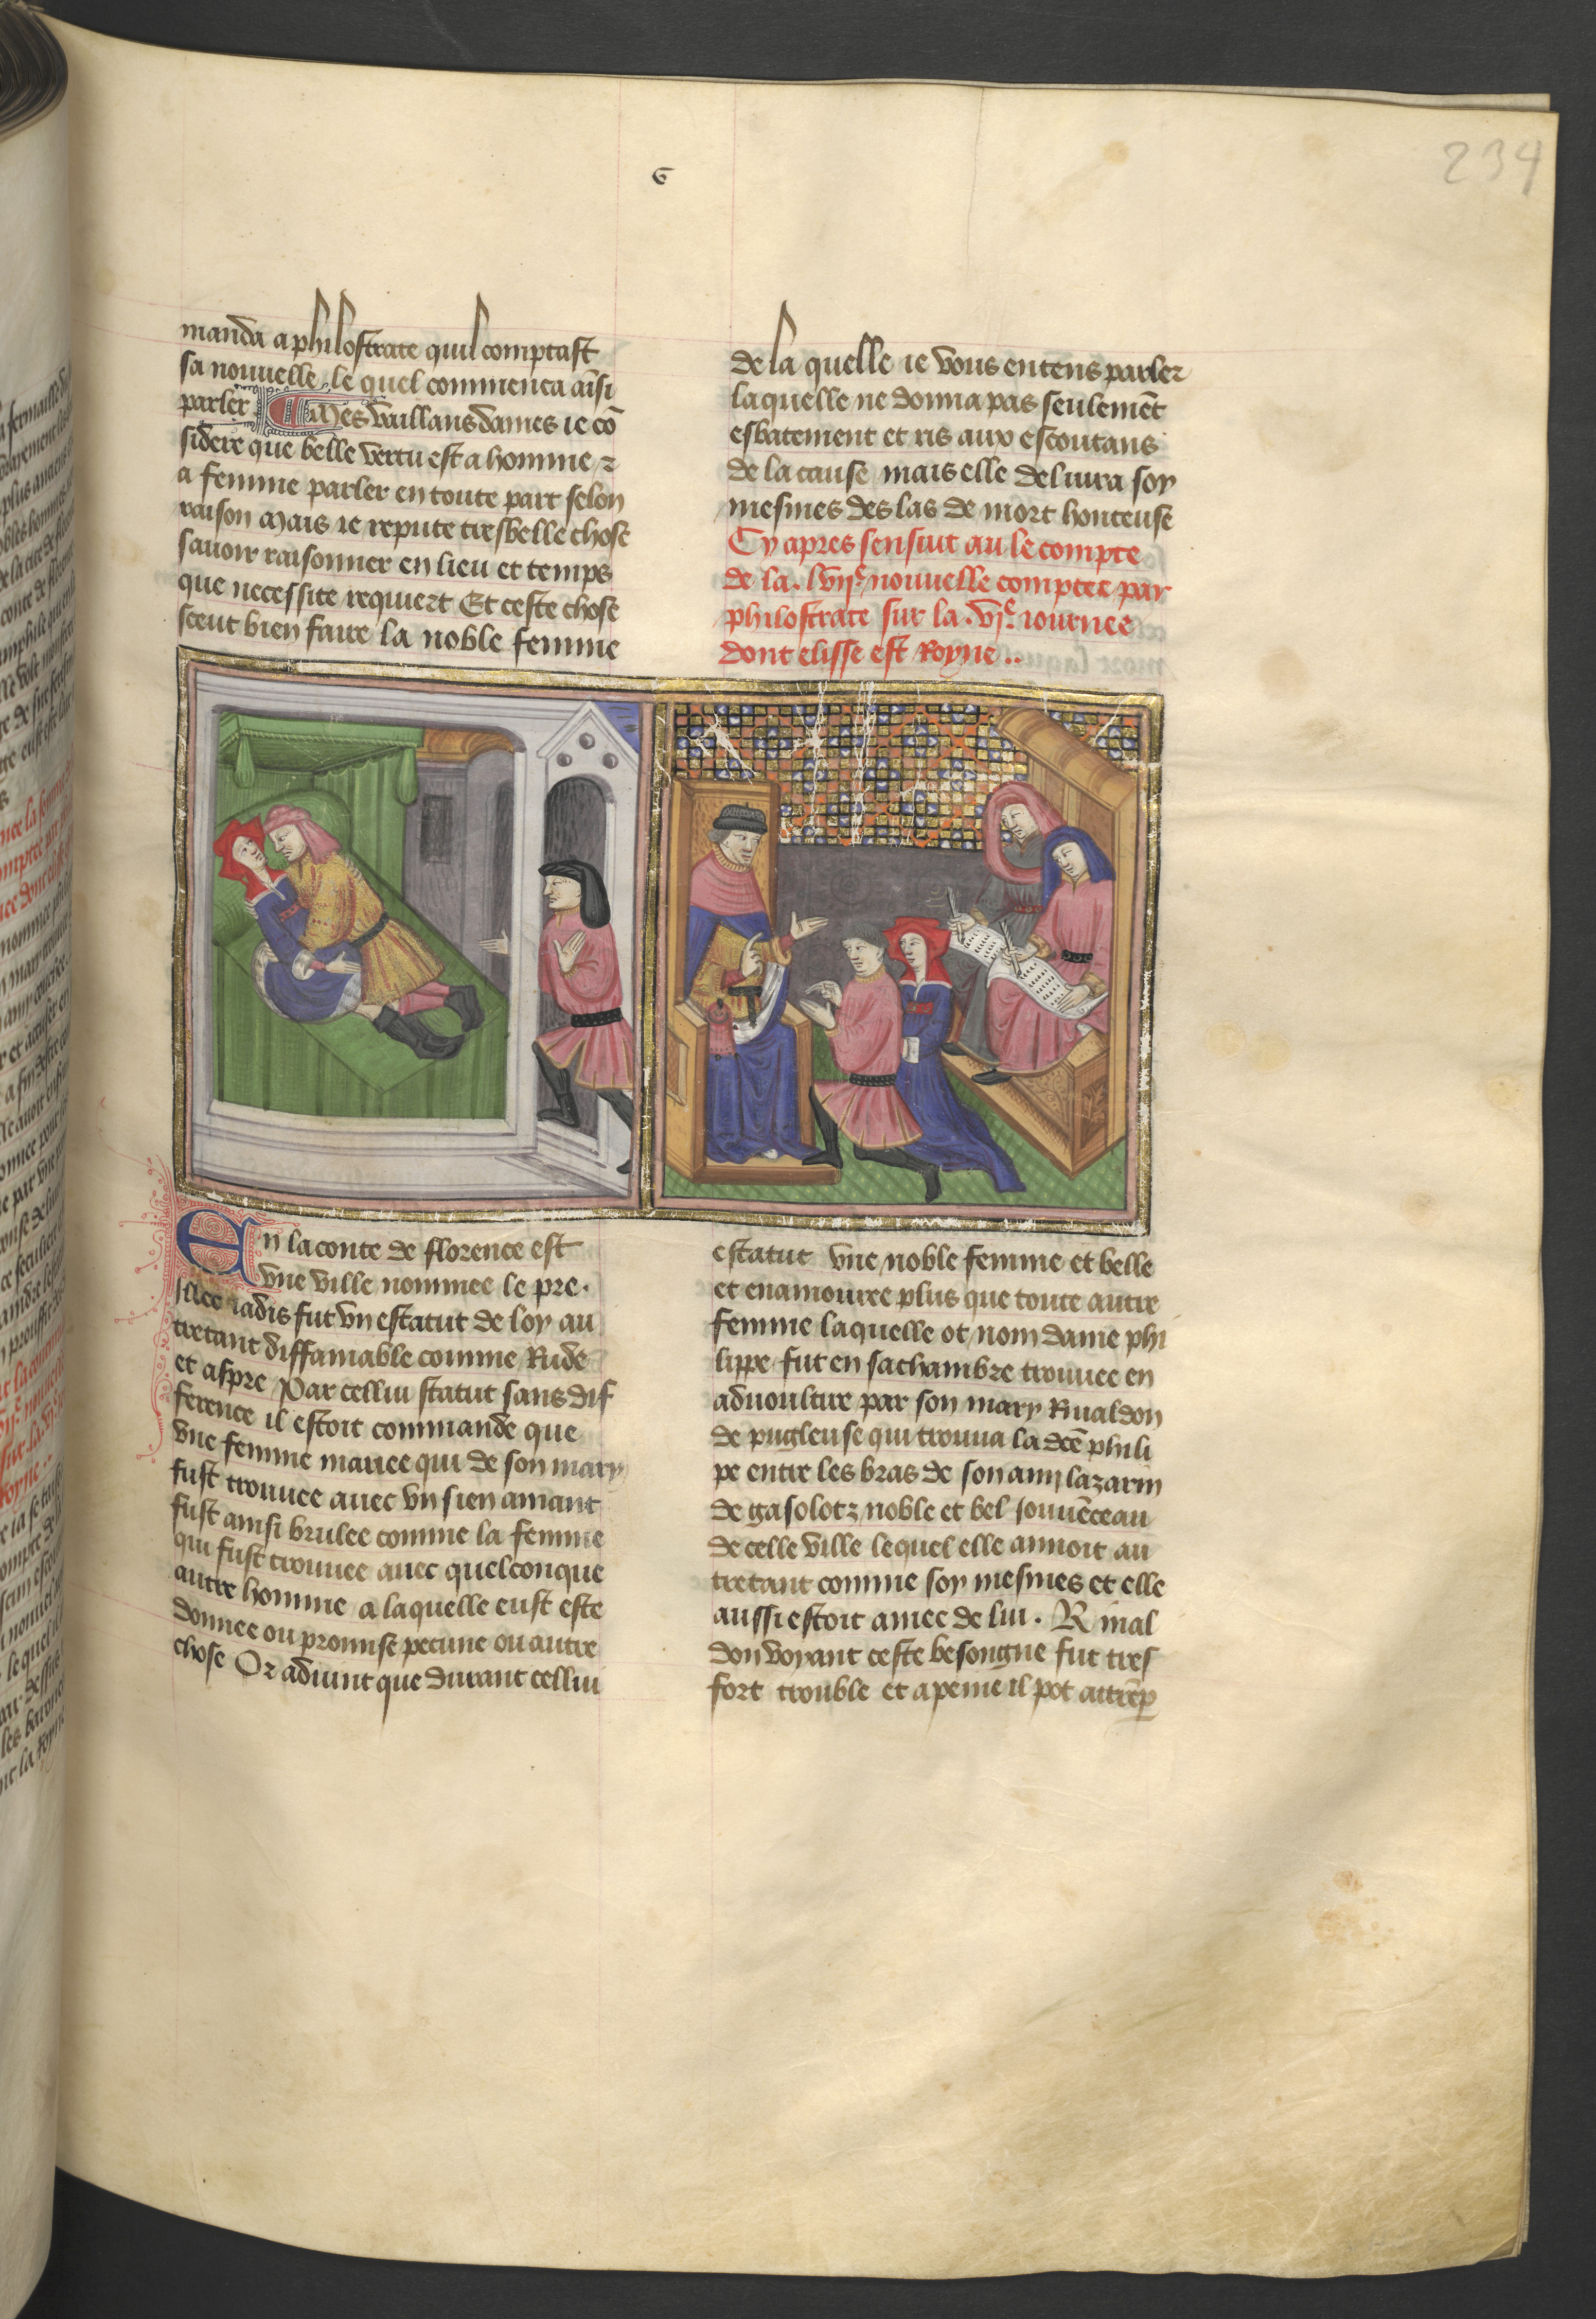 234
G
manda a philostrate quil comptast
sa nouuelle le quel commenca aīsi
parler Mes vaillans dames ie cō
sidere que belle vertu est a homme z
a femme parler en toute part selon
raison Mais ie repute tresbelle chose
sauoir raisonner en lieu et temps
que necessite requiert Et ceste chose
sceut bien faire la noble femme
de la quelle ie vous entens parler
laquelle ne donna pas seulemēt
esbatement et ris aux escoutans
de la cause mais elle deliura soy
mesmes des las de mort honteuse
Cy apres sensuit au le compte
de la .lvije. nouuelle comptee par
philostrate sur la .vje. iournee
dont elisse est Royne ..
En la conte de florence est
vne ville nommee le pre.
illec iadis fut vn estatut de loy au
tretant diffamable comme Rude
et aspre Par cellui statut sans dif
ference il estoit commande que
vne femme mariee qui de son mary
fust trouuee auec vn sien amant
fust ainsi brulee comme la femme
qui fust trouuee auec quelconque
autre homme a laquelle eust este
donnee ou promise pecune ou autre
chose Or aduint que durant cellui
estatut vne noble femme et belle
et enamouree plus que toute autre
femme laquelle ot nom dame phi
lippe fut en sa chambre trouuee en
aduoultire par son mary Rinaldon
de pugliense qui trouua la dcē phili
pe entre les bras de son amy lazarin
de gasolotz noble et bel iouuēceau
de celle ville lequel elle aimoit au
tretant comme soy mesmes et elle
aussi estoit amee de lui. Rinal
don voyant ceste besongne fut tres
fort trouble et a peine il pot attrēp